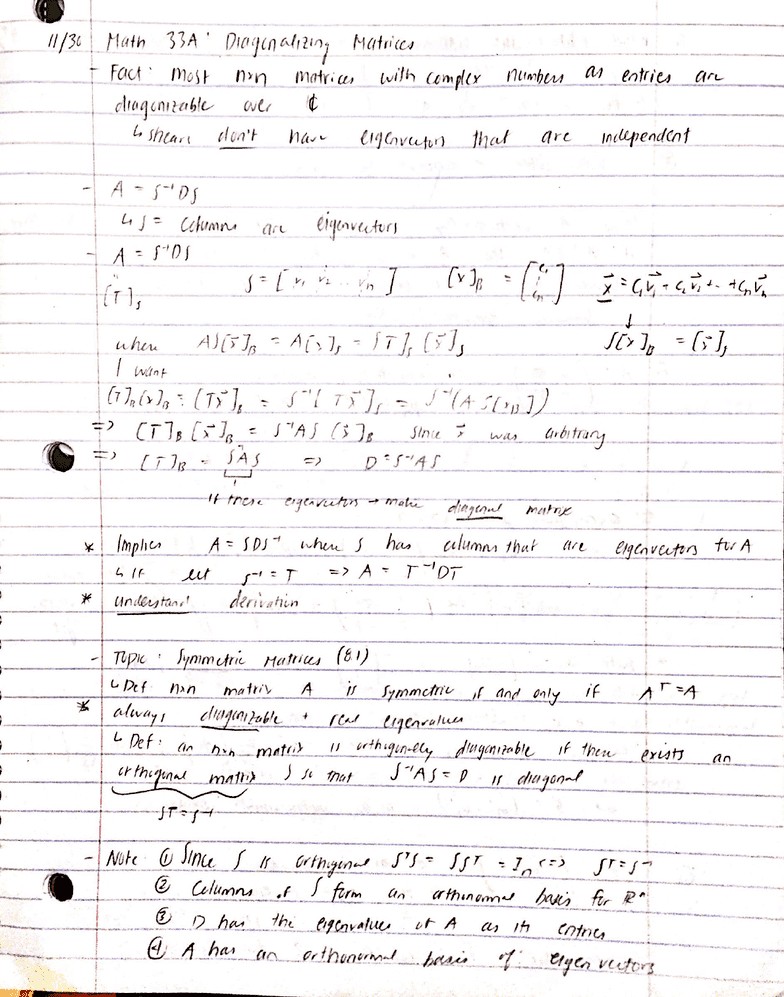 11/30 Math 33A: Diagonalizing Matrices
- Fact: most nxn matrices with complex numbers as entries are
diagonizable over ℂ
↳ shears don't have eigenvectors that are independent
- A = S⁻¹DS
↳ S = columns are eigenvectors
- A = S⁻¹DS
[T]_S S = [v₁ v₂ ... vₙ] [x]_B = [c₁ ⋮ cₙ] x⃗ = c₁v⃗₁ + c₂v⃗₂ + .. + cₙv⃗ₙ
↓
where AS[x⃗]_B = A[x]_S = [T]_S [x⃗]_S S[x]_B = [x⃗]_S
I want
[T]_B[x]_B = [Tx⃗]_B = S⁻¹[Tx⃗]_S = S⁻¹(AS[x_B])
=> [T]_B [x⃗]_B = S⁻¹AS [x⃗]_B since x⃗ was arbitrary
=> [T]_B = S⁻¹AS => D = S⁻¹AS
if these eigenvectors → make diagonal matrix
* Implies A = SDS⁻¹ where S has columns that are eigenvectors for A
↳ If let S⁻¹ = T => A = T⁻¹DT
* understand derivation
- Topic: Symmetric Matrices (8.1)
↳ Def nxn matrix A is symmetric if and only if Aᵀ = A
* always diagonizable + real eigenvalues
↳ Def: an nxn matrix is orthogonally diagonizable if there exists an
orthogonal matrix S so that S⁻¹AS = D is diagonal
Sᵀ = S⁻¹
- Note ① Since S is orthogonal SᵀS = SSᵀ = Iₙ <=> Sᵀ = S⁻¹
② Columns of S form an orthonormal basis for ℝⁿ
③ D has the eigenvalues of A as its entries
④ A has an orthonormal basis of eigenvectors